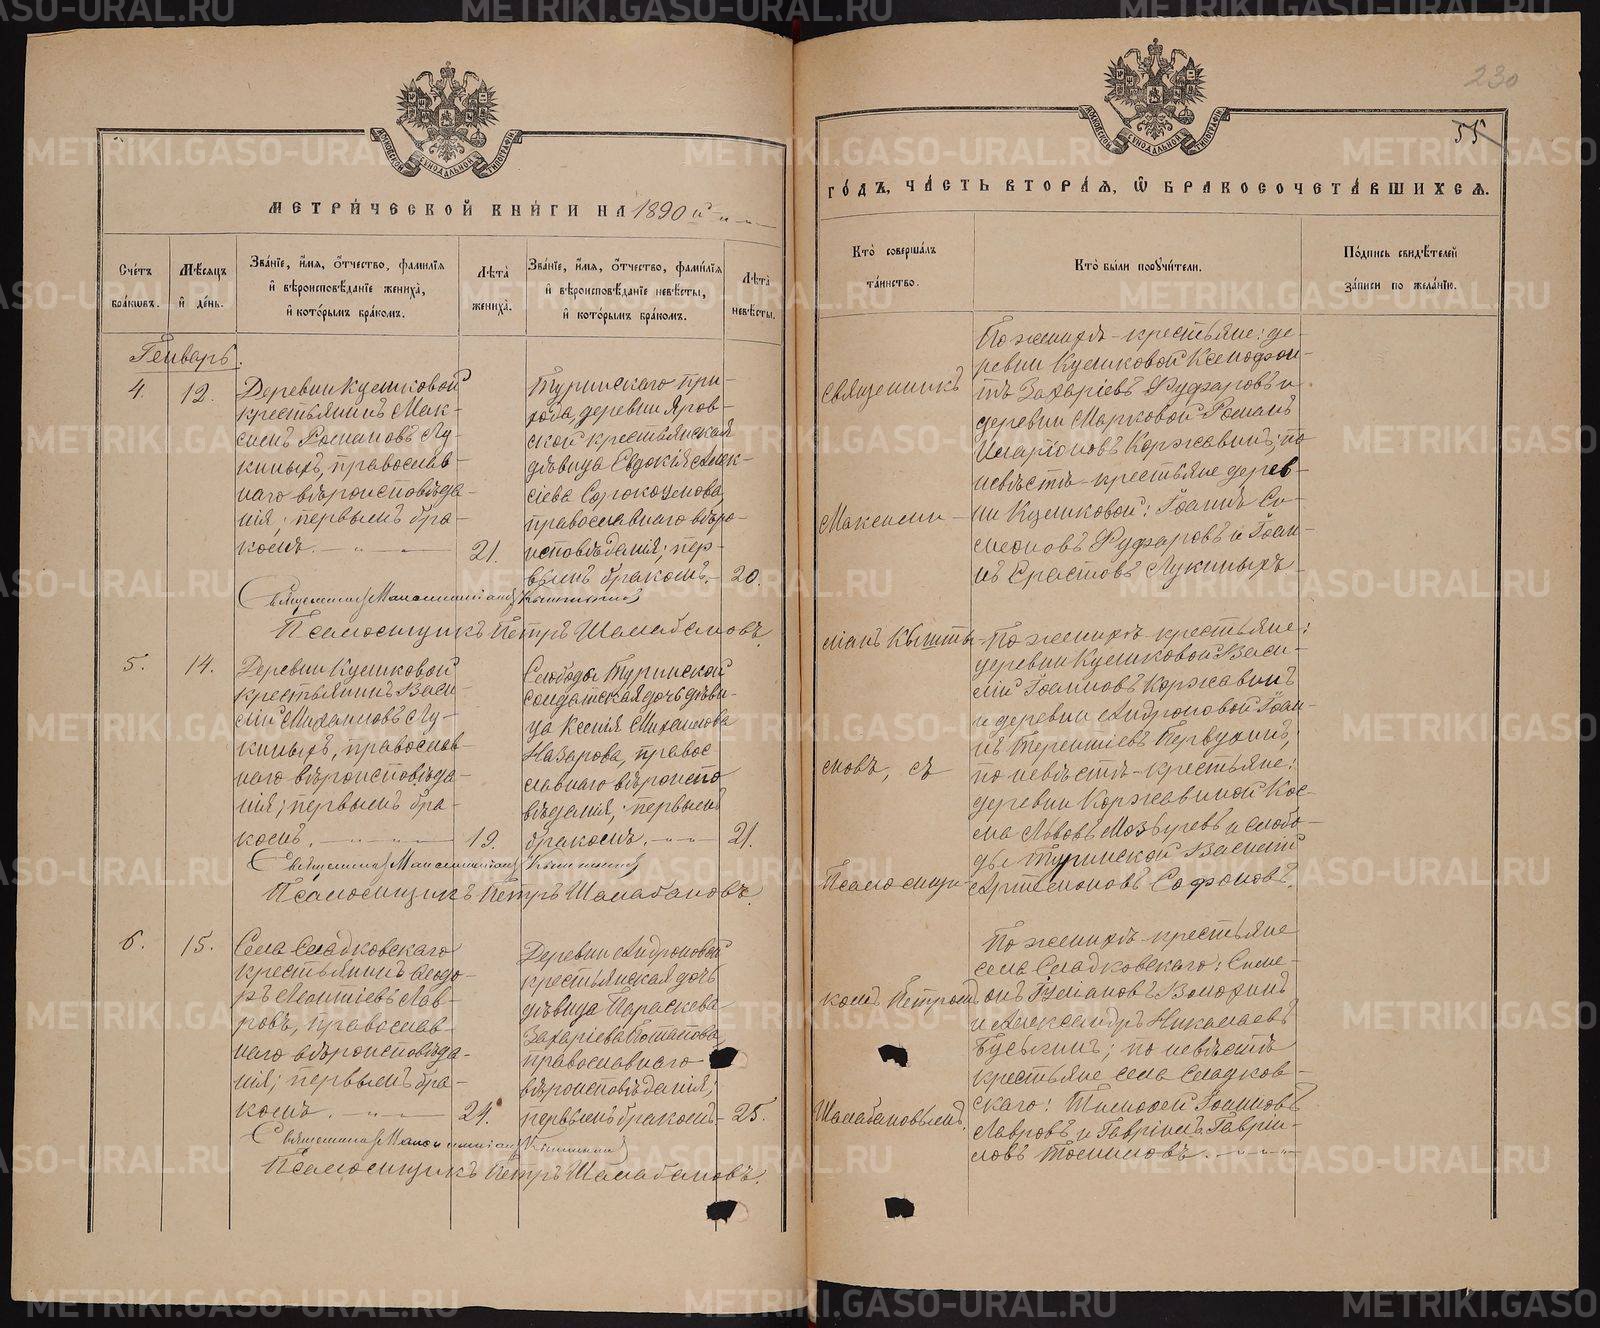 METRIKI.GASO-URAL.RU
230
55
МОСКОВСКОЙ СѴНОДАЛЬНОЙ ТИПОГРАФІИ
МЕТРИЧЕСКОЙ КНИГИ НА 1890 й
Счетъ браковъ.
Мѣсяцъ и день.
Званіе, имя, отчество, фамилія и вѣроисповѣданіе жениха, и которымъ бракомъ.
Лѣта жениха.
Званіе, имя, отчество, фамилія и вѣроисповѣданіе невѣсты, и которымъ бракомъ.
Лѣта невѣсты.
Генварь.
4.
12.
Деревни Кушковой
крестьянинъ Мак-
симъ Романовъ Лу-
киныхъ, православ-
наго вѣроисповѣда-
нія; первымъ бра-
комъ.
21.
Туринскаго при-
хода, деревни Яров-
ской крестьянская
дѣвица Евдокія Алек-
сіева Сорокоумова,
православнаго вѣро-
исповѣданія; пер-
вымъ бракомъ.
20.
Священникъ Максимиліанъ
Псаломщикъ Петръ Шалабановъ.
5.
14.
Деревни Кушковой
крестьянинъ Васи-
лій Михаиловъ Лу-
киныхъ, православ-
наго вѣроисповѣда-
нія; первымъ бра-
комъ.
19.
Слободы Туринской
солдатская дочь дѣви-
ца Ксенія Михаилова
Назарова, правос-
лавнаго вѣроиспо
вѣданія; первымъ
бракомъ.
21.
Священникъ Максимиліанъ
Псаломщикъ Петръ Шалабановъ.
6.
15.
Села Сладковскаго
крестьянинъ Ѳеодо-
ръ Леонтіевъ Лав-
ровъ, православ-
наго вѣроисповѣда-
нія; первымъ бра-
комъ.
24.
Деревни Андроновой
крестьянская дочь
дѣвица Параскева
Захаріева Потапова,
православнаго
вѣроисповѣданія;
первымъ бракомъ
25.
Священникъ Максимиліанъ
Псаломщикъ Петръ Шалабановъ.
МОСКОВСКОЙ СѴНОДАЛЬНОЙ ТИПОГРАФІИ
ГОДЪ, ЧАСТЬ ВТОРАЯ, Ѡ БРАКОСОЧЕТАВШИХСЯ.
Кто совершалъ таинство.
Кто были поручители.
Подпись свидѣтелей записи по желанію.
Священникъ
Максими-
ліанъ
новъ, съ
Псаломщи-
комъ Петромъ
Шалабановымъ.
По женихѣ - крестьяне: де-
ревни Кушковой Ксенофон-
тъ Захаріевъ и
деревни Марковой Романъ
Иларіоновъ Коржавинъ; по
невѣстѣ - крестьяне дерев-
ни Кушковой: Іоаннъ Си-
меоновъ и Іоан-
нъ Ерастовъ Лукиныхъ
По женихѣ крестьяне:
деревни Кушковой Васи-
лій Іоанновъ Коржавинъ
и деревни Андроновой Іоан-
нъ Терентіевъ Первухинъ;
по невѣстѣ - крестьяне:
деревни Коржавиной Кос-
ма Львовъ и слобо-
ды Туринской Василій
Артемоновъ Софоновъ.
По женихѣ - крестьяне
села Сладковскаго: Симе-
онъ
и Александръ Николаевъ
по невѣстѣ
крестьяне села Сладков-
скаго: Тимофей Іоанновъ
Лавровъ и Гавріилъ Гаврии-
ловъ